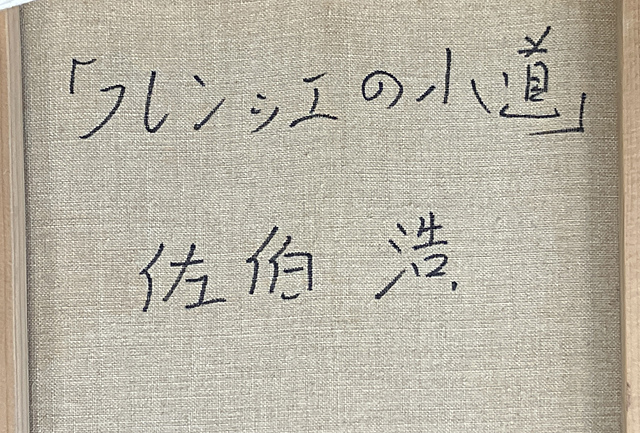 「フレンシエの小道」
佐伯 浩